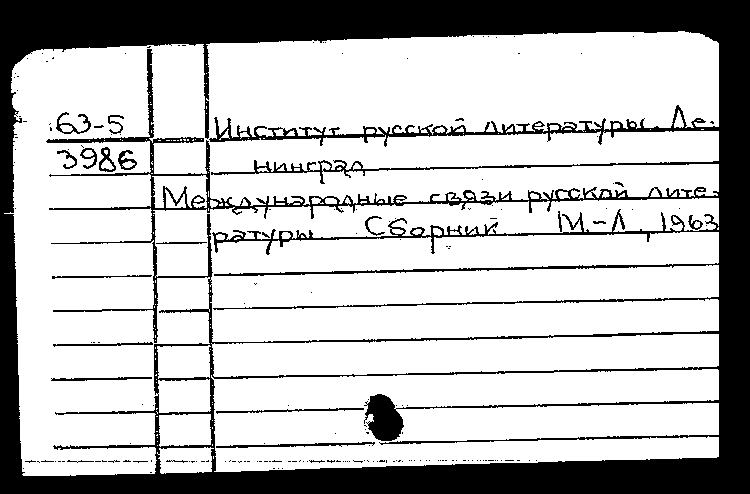 63-5 Институт русской литературы. Ле-
3986 нинград
Международные связи русской лите-
ратуры Сборник М.-Л., 1963